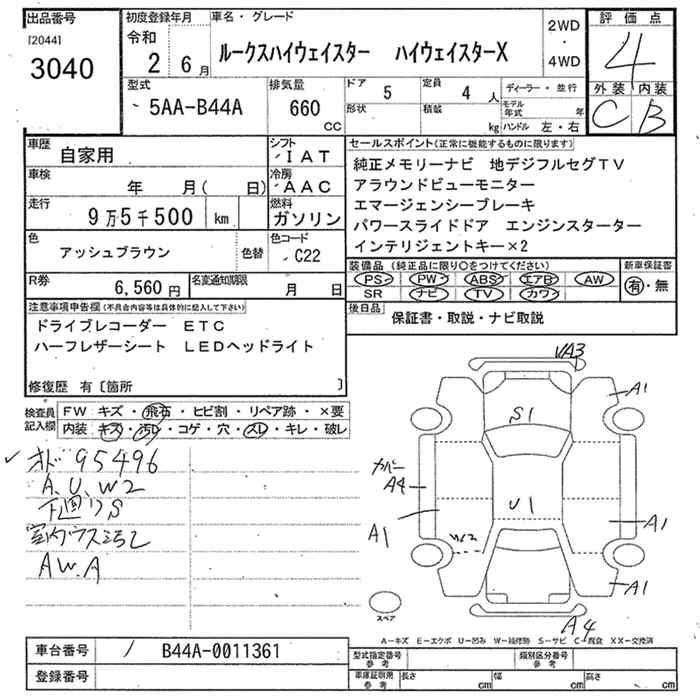 出品番号
[2044]
3040
初度登録年月
令和
2 6月
車名・グレード
ルークスハイウェイスター ハイウェイスターX
2WD
・
4WD
評価点
4
外装 内装
C B
型式
5AA-B44A
排気量
660
CC
ドア 5
形状
定員 4 人
積載 kg
ディーラー・並行
モデル年式 年
ハンドル 左・右
車歴
自家用
シフト
IAT
車検
年 月( 日)
冷房
AAC
走行
9万5千500 km
燃料
ガソリン
色
アッシュブラウン
色替
色コード
C22
R券
6,560円
名変通知期限
月 日
セールスポイント(正常に機能するものに限ります)
純正メモリーナビ 地デジフルセグTV
アラウンドビューモニター
エマージェンシーブレーキ
パワースライドドア エンジンスターター
インテリジェントキー×2
装備品(純正品に限り○をつけてください)
PS PW ABS エアB AW
SR ナビ TV カワ
新車保証書
有・無
後日品
保証書・取説・ナビ取説
注意事項申告欄(不具合内容等は具体的に記入して下さい)
ドライブレコーダー ETC
ハーフレザーシート LEDヘッドライト
修復歴 有〔箇所 〕
検査員記入欄
FW キズ・飛石・ヒビ割・リペア跡・×要
内装 キズ・汚レ・コゲ・穴・スレ・キレ・破レ
オド 95496
A、U、W2
下廻りS
室内ウス汚レ
AW.A
VA3
A1
S1
カバー
A4
U1
A1
W2
A1
A1
A4
スペア
A-キズ E-エクボ U-凹み W-補修跡 S-サビ C-腐食 XX-交換済
車台番号
B44A-0011361
登録番号
型式指定番号
参考
類別区分番号
参考
車庫証明用
参考
長さ cm
幅 cm
高さ cm